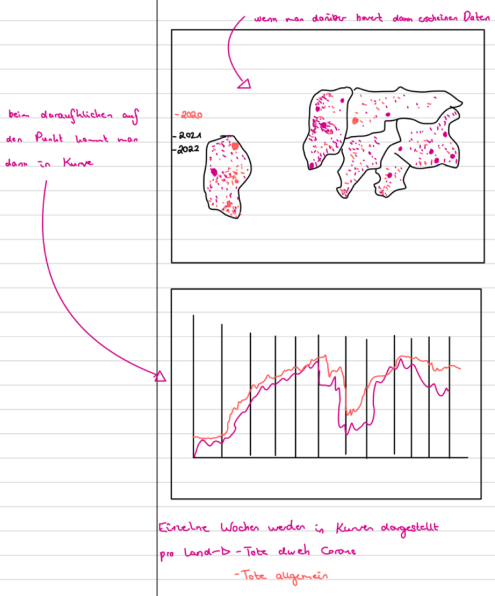 wenn man darüber hovert dann erscheinen Daten
beim daraufklicken auf
den Punkt kommt man
dann in Kurve
- 2020
- 2021
- 2022
Einzelne Wochen werden in Kurven dargestellt
pro Land -> - Tote durch Corona
- Tote allgemein